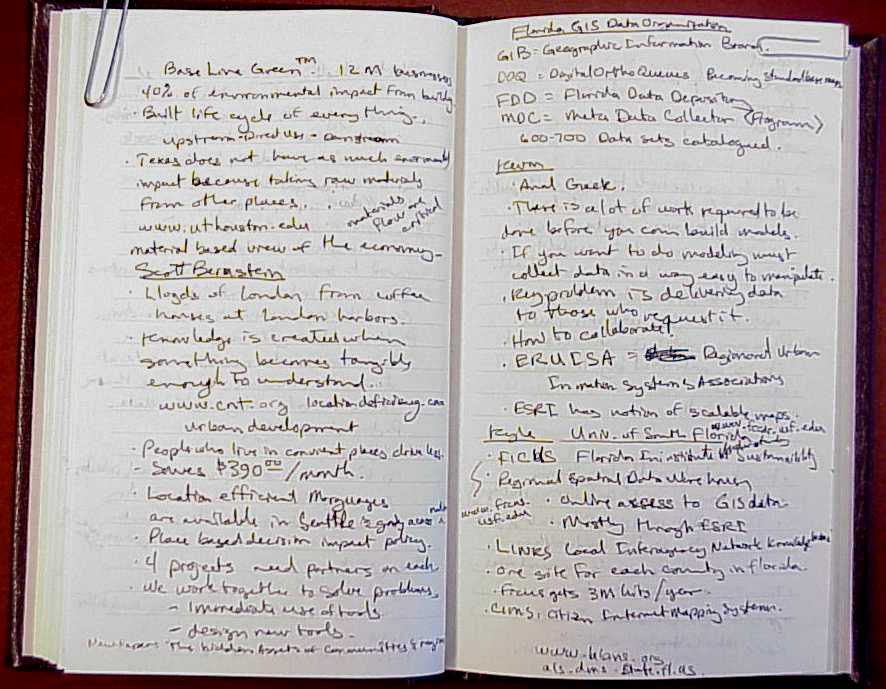 Base Line Green™ 12M businesses
40% of environmental impact from buildg.
· Built life cycle of everything.
upstream - Direct use - downstream
· Texas does not have as much environmental
impact because taking raw materials
from other places.
materials flow are critical
www.uthouston.edu
material based view of the economy -
Scott Bernstein
· Lloyds of London from coffee
houses at London harbors.
· Knowledge is created when
something becomes tangible
enough to understand.
www.cnt.org locationefficiency.com
urban development
· People who live in convient places drive less.
- Saves $390.00/month.
· Location efficient Morguages
are available in Seattle is going across
· Place based decision impact policy.
· 4 projects need partners on each
· We work together to solve problems.
- Immediate use of tools.
- design new tools.
New Papers "The Hidden Assets of Communities &
Florida GIS Data Organization
GIB = Geographic Information Board.
DOQ = Digital Ortho Queues, Becoming standard base maps
FDD = Florida Data Depository
MDC = Meta Data Collector (Program)
600-700 Data sets catalogued.
Kevin
· Anal Greek.
· There is a lot of work required to be
done before you can build models.
· If you want to do modeling must
collect data in a way easy to manipulate.
· Key problem is delivering data
to those who request it.
· How to collaborate!
· ERUISA = Regional Urban
Information Systems Associations
· ESRI has notion of scalable maps.
Kyle Univ. of South Florida
· FICUS Florida Institute of Sustainability
· Regional spatial Data Warehousing
· Online access to GIS data
· Mostly through ESRI
· LINKS Local Interagency Network Knowledge
· One site for each county in florida.
· Focus gets 3M hits/year.
· CIMS, Citizen Internet Mapping Systems.